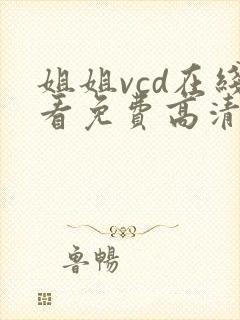 姐姐vcd在线
看免费高清
鲁暢